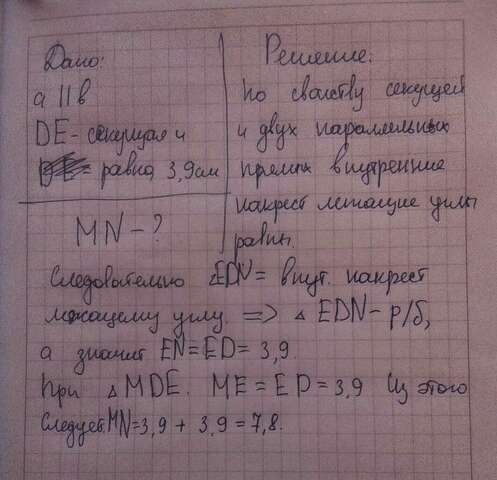 Дано:
a || в
DE - секущая и
равна 3,9 см
MN - ?
Решение:
по свойству секущей
и двух параллельных
прямых внутренние
накрест лежащие углы
равны.
Следовательно ∠EDN = внут. накрест
лежащему углу. => △ EDN - р/б,
а значит EN = ED = 3,9.
При △ MDE. ME = ED = 3,9 Из этого
следует MN = 3,9 + 3,9 = 7,8.